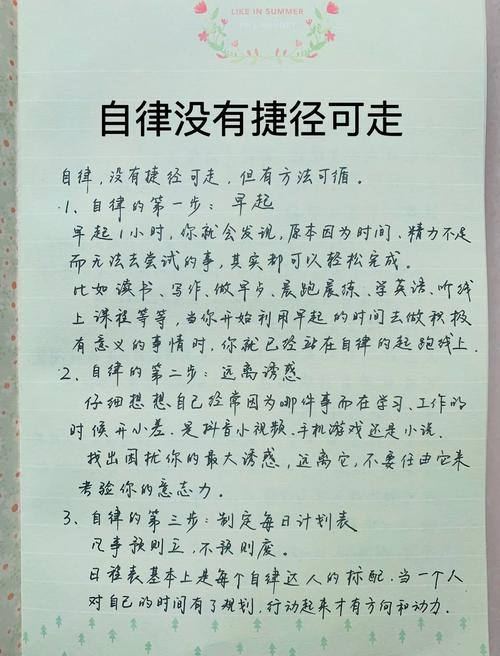 LIKE IN SUMMER
自律没有捷径可走
自律,没有捷径可走,但有方法可循。
1、自律的第一步:早起
早起1小时,你就会发现,原本因为时间、精力不足
而无法去尝试的事,其实都可以轻松完成。
比如读书、写作、做早点、晨跑晨练、学英语、听线
上课程等等,当你开始利用早起的时间去做积极
有意义的事情时,你就已经站在自律的起跑线上.
2、自律的第二步:远离诱惑
仔细想想自己经常因为哪件事而在学习、工作的
时候开小差.是抖音小视频、手机游戏还是小说.
找出困扰你的最大诱惑,远离它,不要任由它来
考验你的意志力。
3、自律的第三步:制定每日计划表
凡事预则立,不预则废。
日程表基本上是每个自律达人的标配.当一个人
对自己的时间有了规划,行动起来才有方向和动力.